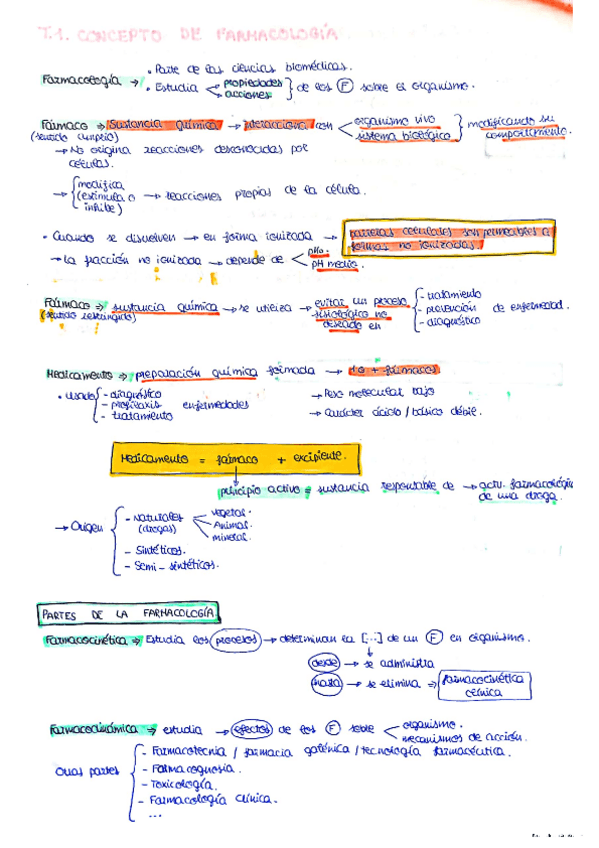 T.1. CONCEPTO DE FARMACOLOGÍA
Farmacología → • Parte de las ciencias biomédicas.
• Estudia < propiedades acciones } de los (F) sobre el organismo.
Fármaco ⇒ Sustancia química → interacciona con < organismo vivo sistema biológico } modificando su comportamiento.
(sentido amplio) → No origina reacciones desconocidas por células.
→ { modifica (estimula o inhibe) → reacciones propias de la célula.
• Cuando se disuelven → en forma ionizada → barreras celulares son permeables a formas no ionizadas.
→ la fracción no ionizada → depende de < pKa. pH medio.
Fármaco ⇒ sustancia química → se utiliza → evitar un proceso fisiológico no deseado en { - tratamiento - prevención - diagnóstico de enfermedad.
(sentido restringido)
Medicamento ⇒ preparación química formada → 1 o + fármacos
• Usado { - diagnóstico - profilaxis - tratamiento enfermedades
→ Peso molecular bajo
→ Carácter ácido / básico débil.
Medicamento = fármaco + excipiente.
principio activo = sustancia responsable de → activ. farmacológica de una droga.
→ Origen { - Naturales (drogas) < vegetal. Animal. mineral.
- Sintéticos.
- Semi-sintéticos.
PARTES DE LA FARMACOLOGÍA
Farmacocinética ⇒ Estudia los procesos → determinan la [...] de un (F) en organismo.
desde → se administra
hasta → se elimina ⇒ farmacocinética clínica
Farmacodinámica ⇒ estudia → efectos de los (F) sobre < organismo. mecanismos de acción.
Otras partes { - Farmacotecnia / farmacia galénica / tecnología farmacéutica.
- Farmacognosia.
- Toxicología.
- Farmacología clínica.
...